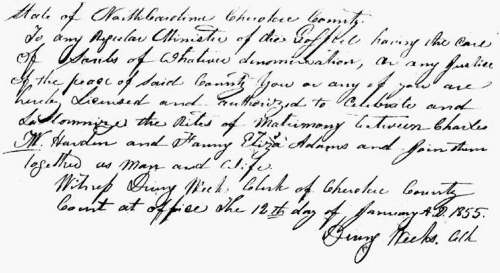 State of North Carolina Cherokee County.
To any Regular Minister of the Gospel having the care
of Souls of Whatever denomination, or any Justice
of the peace of said County You or any of you are
hereby Licensed and Authorized to Celebrate and
Solomnize the Rites of Matrimony between Charles
W. Harden and Fanny Eliza Adams and Join them
together as Man and Wife.
Witness Drury Weeks, Clerk of Cherokee County
Court at office the 12th day of January A.D. 1855.
Drury Weeks. Clk